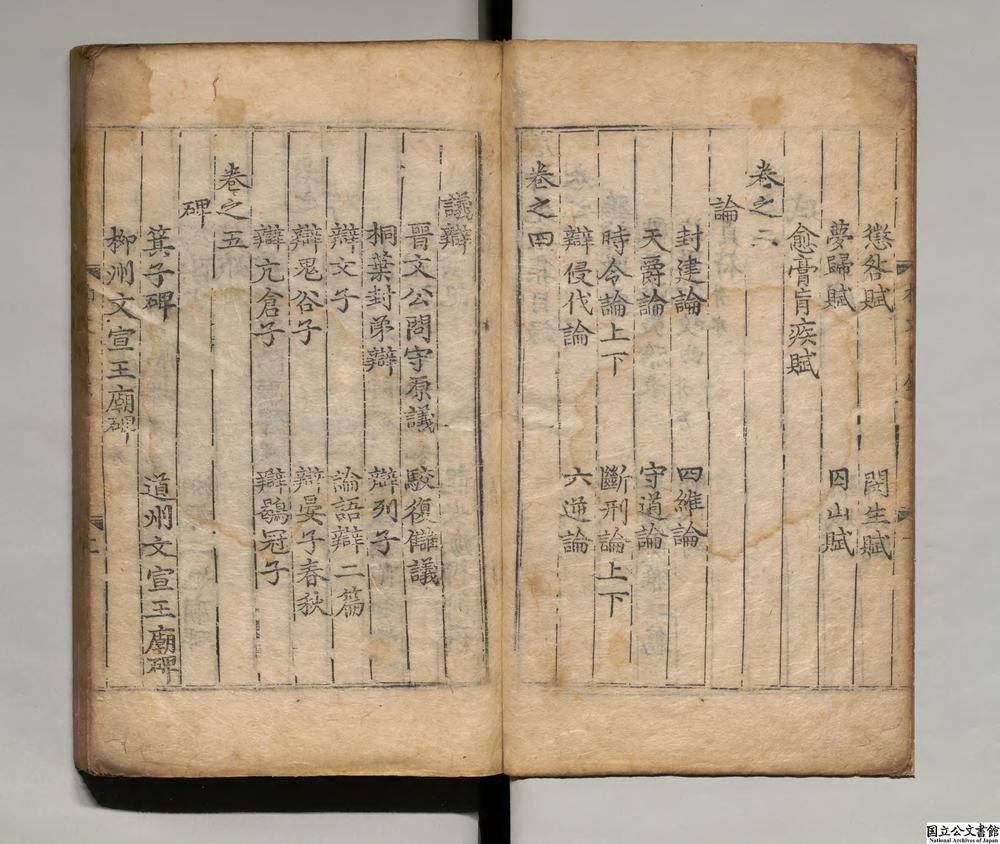 懲咎賦 閔生賦
夢歸賦 囚山賦
愈膏肓疾賦
卷之三
論
封建論 四維論
天爵論 守道論
時令論上下 斷刑論上下
辯侵伐論 六逆論
卷之四
議辯
晉文公問守原議 駮復讎議
桐葉封弟辯 辯列子
辯文子 論語辯二篇
辯鬼谷子 辯晏子春秋
辯亢倉子 辯鶡冠子
卷之五
碑
箕子碑 道州文宣王廟碑
柳州文宣王廟碑
国立公文書館
National Archives of Japan